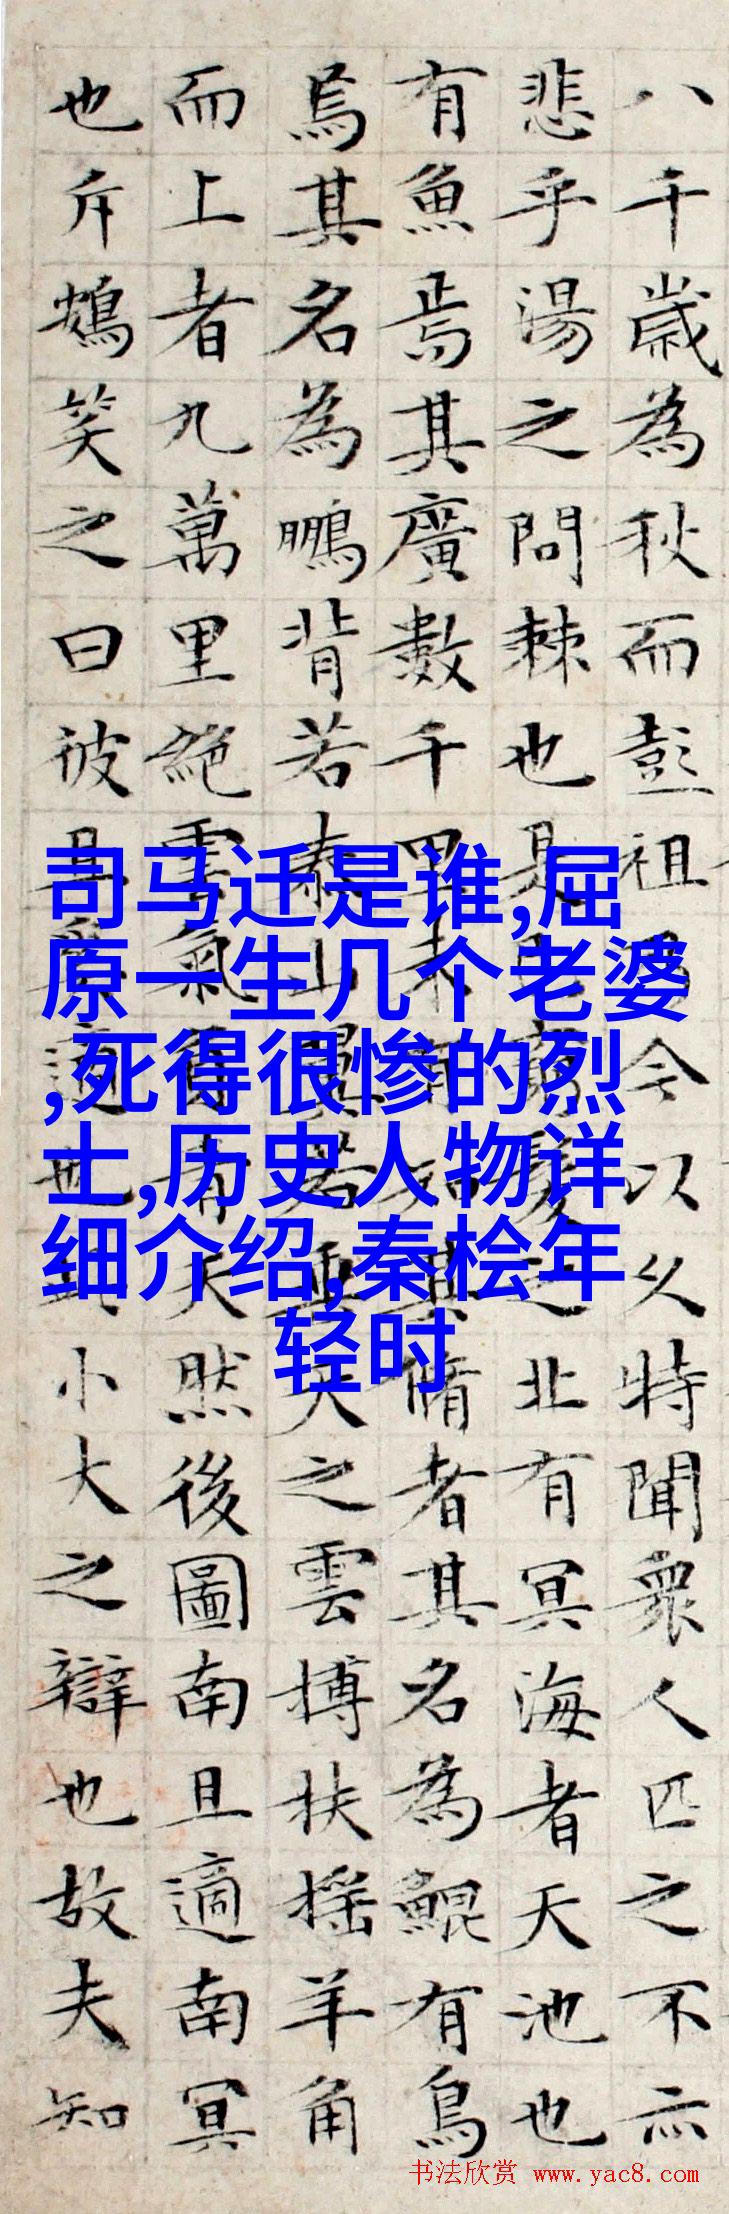 八千歲為秋而彭祖乃今以久特聞衆人匹之不亦
悲乎湯之問棘也是已窮髮之北有冥海者天池也
有魚焉其廣數千里未有知其脩者其名為鯤有鳥
焉其名為鵬背若泰山翼若垂天之雲搏扶摇羊角
而上者九萬里絕雲氣負青天然後圖南且適南冥
也斥鴳笑之曰彼且奚適也小大之辯也故夫知
司马迁是谁,屈
原一生几个老婆
,死得很惨的烈
士,历史人物详
细介绍,秦桧年
轻时
书法欣赏 www.yac8.com